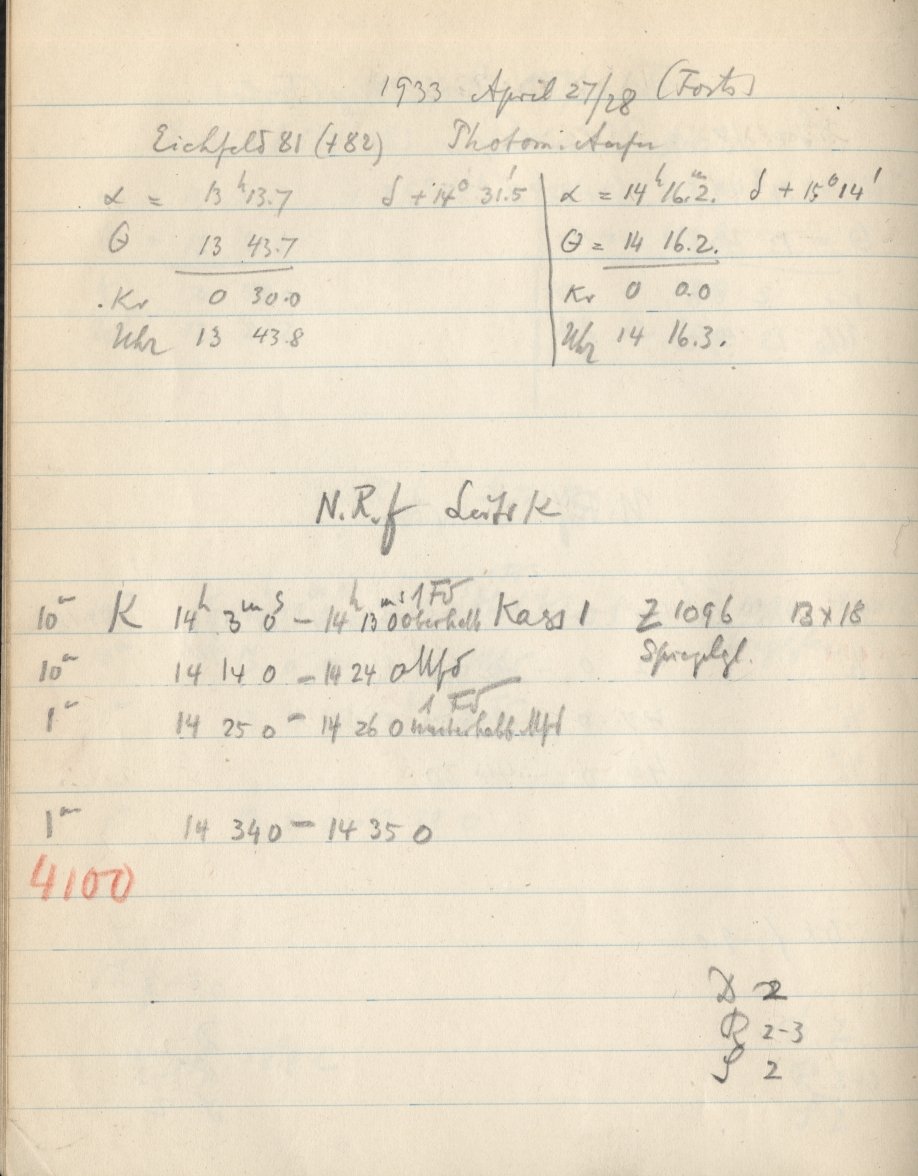 1933 April 27/28 (Forts)
Eichfeld 81 (+82) Photom. Aufn
α = 13h 13.7 δ + 14° 31'.5
θ 13 43.7
Kr 0 30.0
Uhr 13 43.8
α = 14h 16.2m. δ + 15° 14'
θ = 14 16.2.
Kr 0 0.0
Uhr 14 16.3.
N.R.f
10m K 14h 3m 0s – 14h 13m 0s 1 Fd oberhalb Kass 1 Z 1096 13 x 18
Spiegelgl.
10m 14 14 0 – 14 24 0 Mfd
1m 14 25 0 – 14 26 0 1 Fd unterhalb Mfd
1m 14 34 0 – 14 35 0
4100
D 2
R 2-3
S 2